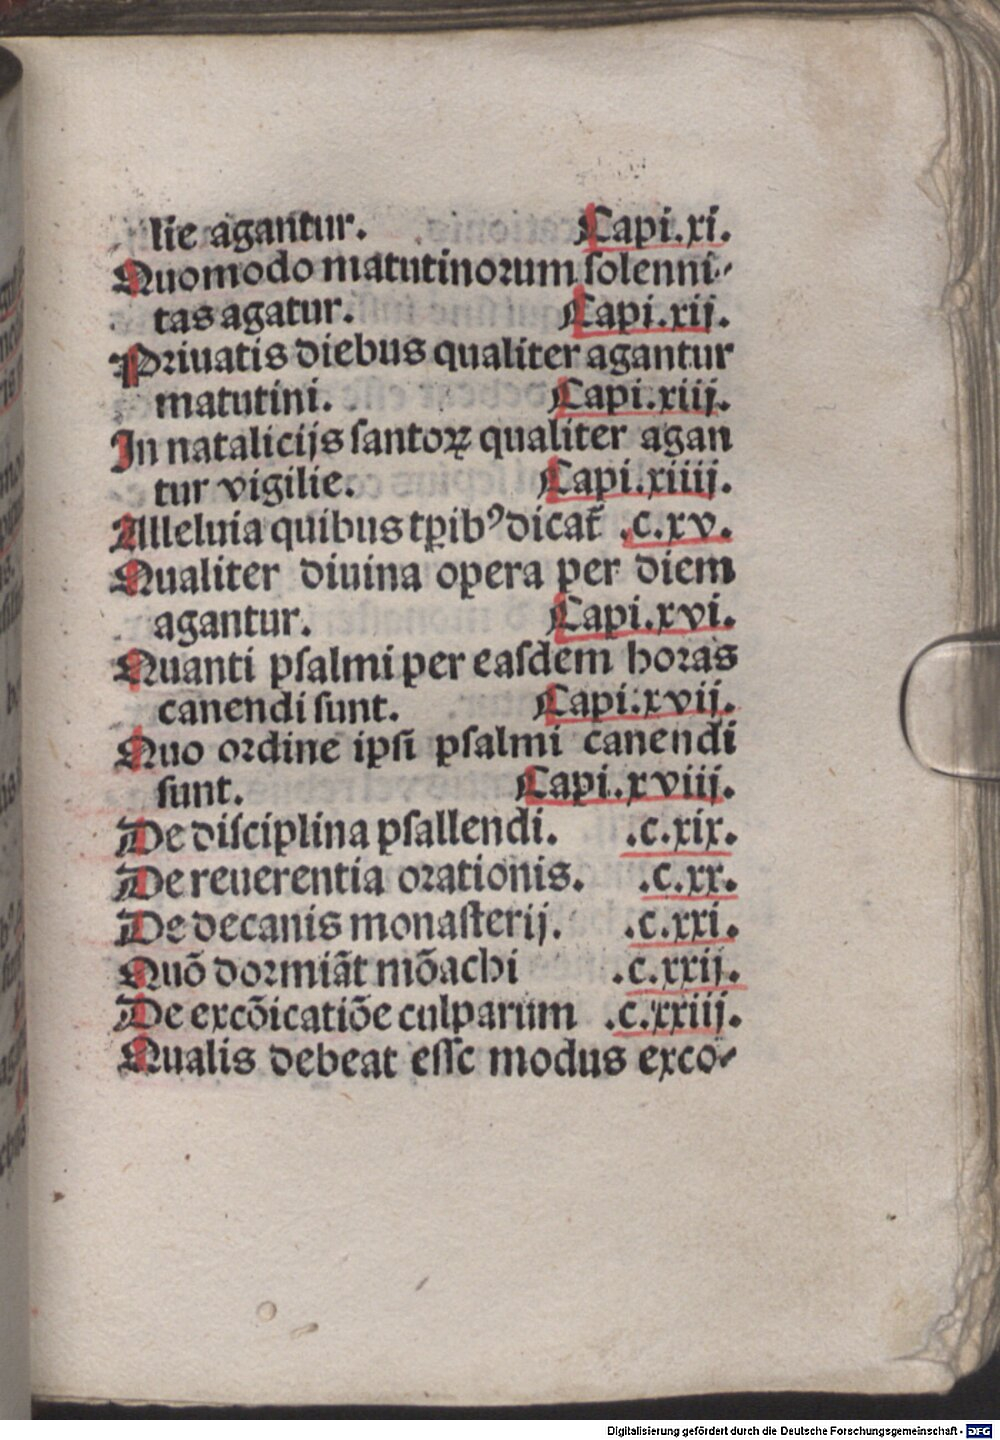 lie agantur. Capi.xi.
Quomodo matutinorum solenni-
tas agatur. Capi.xij.
Priuatis diebus qualiter agantur
matutini. Capi.xiij.
In natalicijs santoꝝ qualiter agan
tur vigilie. Capi.xiiij.
Alleluia quibus tp̄ibꝰ dicat̄ .c.xv.
Qualiter diuina opera per diem
agantur. Capi.xvi.
Quanti psalmi per easdem horas
canendi sunt. Capi.xvij.
Quo ordine ipsi psalmi canendi
sunt. Capi.xviij.
De disciplina psallendi. .c.xix.
De reuerentia orationis. .c.xx.
De decanis monasterij. .c.xxi.
Quō dormiāt mōachi .c.xxij.
De excōicatiōe culparum .c.xxiij.
Qualis debeat esse modus exco-
Digitalisierung gefördert durch die Deutsche Forschungsgemeinschaft - DFG